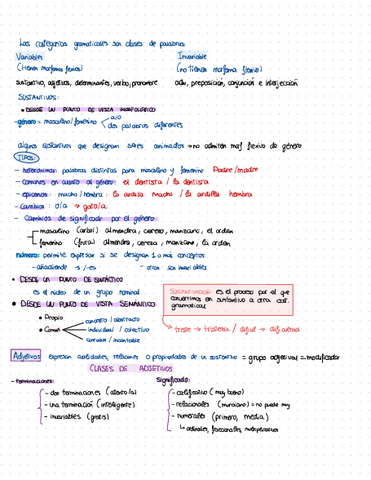 Las categorías gramaticales son clases de palabras:
Variables Invariable
(tienen morfema flexivo) (no tienen morfema flexivo)
sustantivo, adjetivos, determinantes, verbo, pronombre adv, preposición, conjunción e interjección
SUSTANTIVOS:
• DESDE UN PUNTO DE VISTA MORFOLÓGICO
-género = masculino/femenino o/a
dos palabras diferentes
algunos sustantivos que designan seres animados → no admiten morf flexivo de género
TIPOS:
- heterónimos: palabras distintas para masculino y femenino Padre/madre
- comunes en cuanto al género: el dentista / la dentista
- epicenos: macho / hembra: la ardilla macho / la ardilla hembra
- cambios: o/a → gato/a
- Cambios de significado por el género
masculino (árbol) almendro, cerezo, manzano, el orden
femenino (fruta) almendra, cereza, manzana, la orden
número: permite expresar si se designan 1 o más conceptos
- añadiendo -s / -es - otros son invariables
• DESDE UN PUNTO DE SINTÁCTICO
es el núcleo de un grupo nominal
SUSTANTIVACIÓN: es el proceso por el que convertimos en sustantivo a otra cat. gramatical
• DESDE UN PUNTO DE VISTA SEMÁNTICO
• Propio
• Común
concreto / abstracto
individual / colectivo
contable / incontable
triste → tristeza /
Adjetivos: expresan cualidades, relaciones o propiedades de un sustantivo = grupo adjetival = modificador
CLASES DE ADJETIVOS
- terminaciones: Significado:
- dos terminaciones (abierto/a)
- una terminación (inteligente)
- invariables (gratis)
- calificativo (muy bueno)
- relacionales (murciano) = no puede muy
- numerales (primero, media)
↳ ordinales, fraccionales, multiplicativos